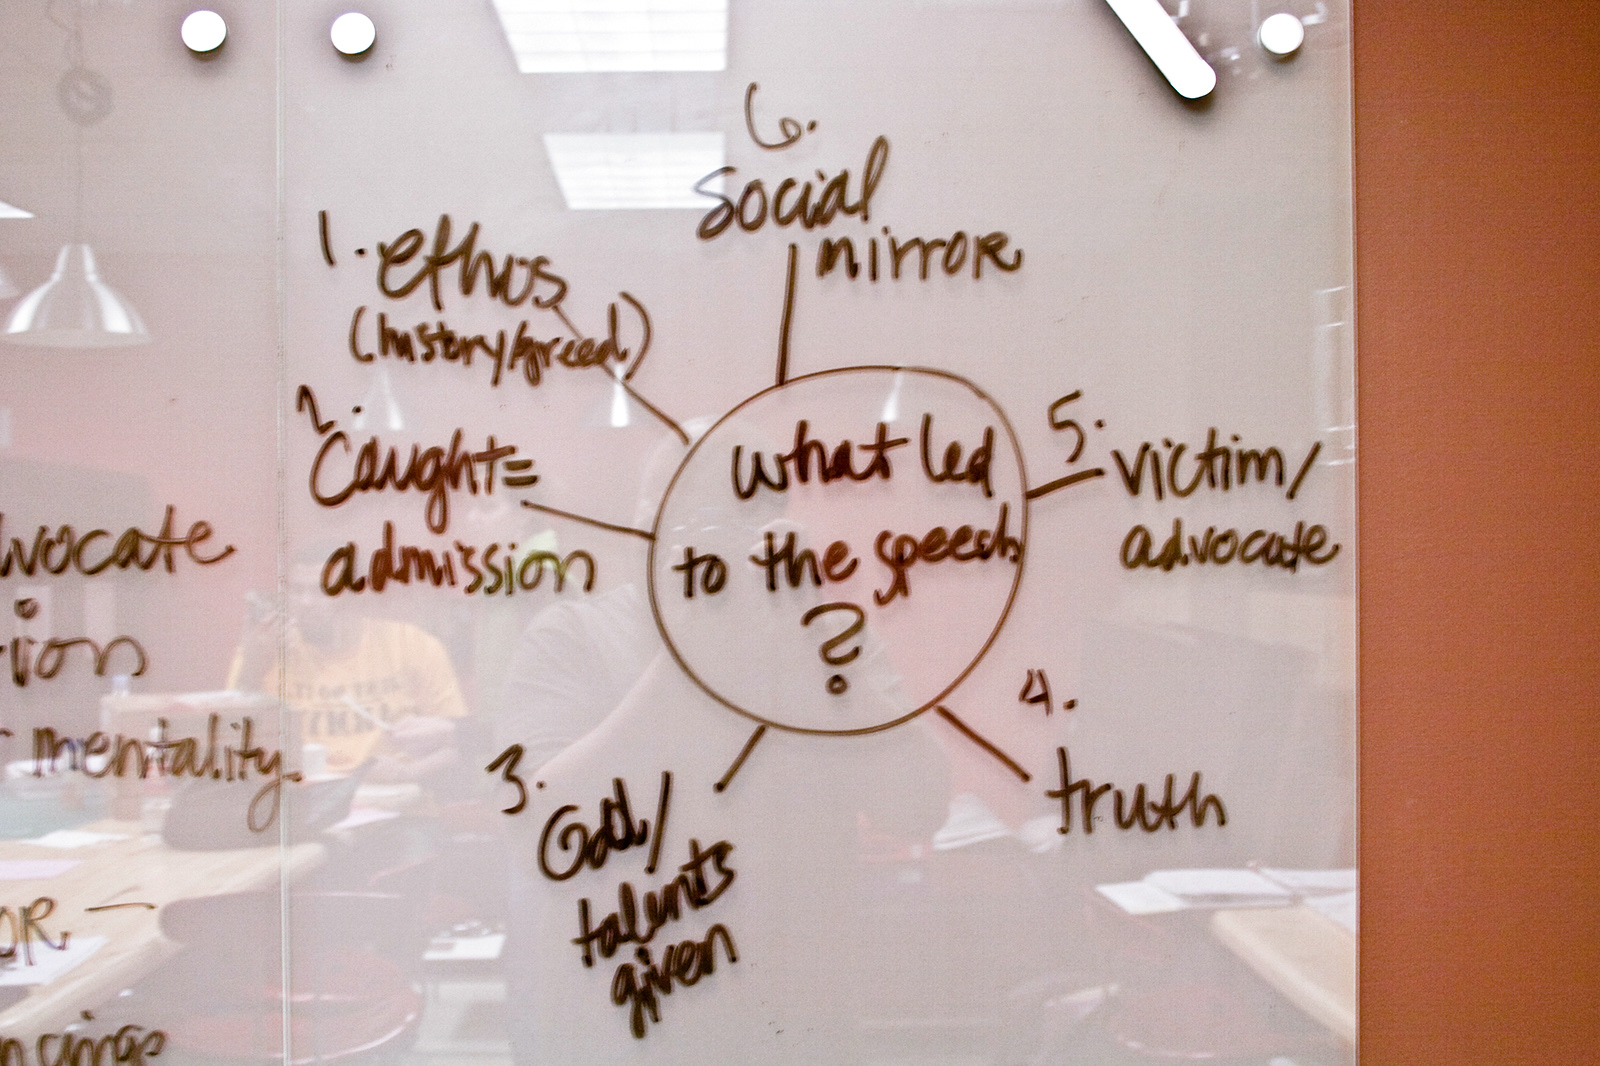 6.
social
mirror
1. ethos
(history/greed)
2.
Caught=
admission
what led
to the speech
?
5.
victim/
advocate
4.
truth
3.
God/
talents
given
mentality.